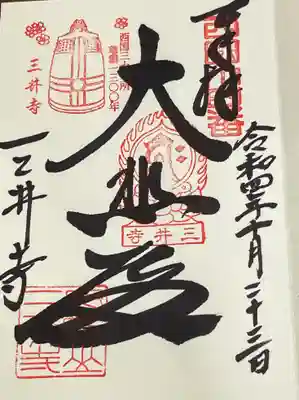 奉拝
西国十四番
令和四年十月二十三日
大悲殿
三井寺
西国三十三所
草創一三〇〇年
三井寺
三井寺